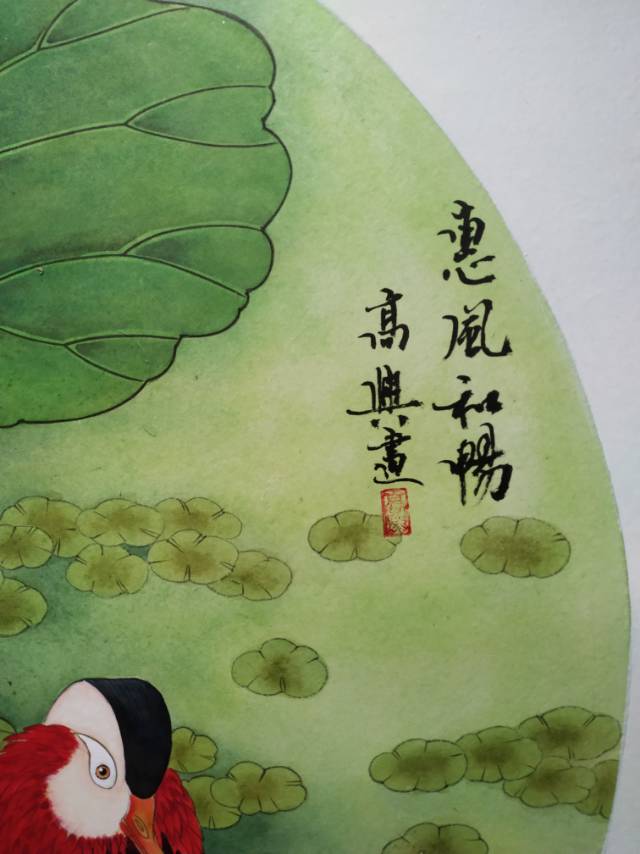 惠风和暢
高興畫